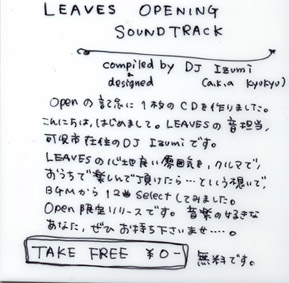 LEAVES OPENING
SOUNDTRACK
compiled by DJ Izumi
& designed (a.k.a kyokyo)
Openの記念に1枚のCDを作りました。
こんにちは、はじめまして。LEAVESの音担当、
可児市在住のDJ Izumiです。
LEAVESの心地良い雰囲気を、クルマで、
おうちで楽しんで頂けたら…という想いで、
BGMから12曲Selectしてみました。
Open限定リリースです。音楽の好きな
あなた、ぜひお持ち下さいませ…。
TAKE FREE ¥0-
無料です。